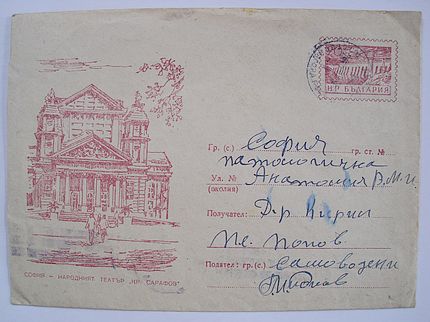 Н.Р. БЪЛГАРИЯ
Гр. (с.) София гр. ст. №
патологична
Ул. № Анатомия В.М.И.
(околия)
Получател: Д-р Кирил
Попов
Подател: гр.(с.) Самоводени
СОФИЯ — НАРОДНИЯТ ТЕАТЪР „КР. САРАФОВ"